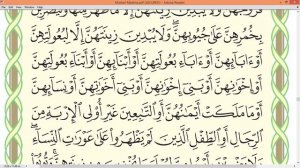 فُرُوجَهُنَّ وَلَا يُبْدِينَ زِينَتَهُنَّ إِلَّا مَا ظَهَرَ مِنْهَا وَلْيَضْرِبْنَ
بِخُمُرِهِنَّ عَلَىٰ جُيُوبِهِنَّ ۖ وَلَا يُبْدِينَ زِينَتَهُنَّ إِلَّا لِبُعُولَتِهِنَّ
أَوْ ءَابَآئِهِنَّ أَوْ ءَابَآءِ بُعُولَتِهِنَّ أَوْ أَبْنَآئِهِنَّ أَوْ أَبْنَآءِ بُعُولَتِهِنَّ
أَوْ إِخْوَٰنِهِنَّ أَوْ بَنِىٓ إِخْوَٰنِهِنَّ أَوْ بَنِىٓ أَخَوَٰتِهِنَّ أَوْ نِسَآئِهِنَّ
أَوْ مَا مَلَكَتْ أَيْمَٰنُهُنَّ أَوِ ٱلتَّٰبِعِينَ غَيْرِ أُو۟لِى ٱلْإِرْبَةِ مِنَ
ٱلرِّجَالِ أَوِ ٱلطِّفْلِ ٱلَّذِينَ لَمْ يَظْهَرُوا۟ عَلَىٰ عَوْرَٰتِ ٱلنِّسَآءِ ۖ